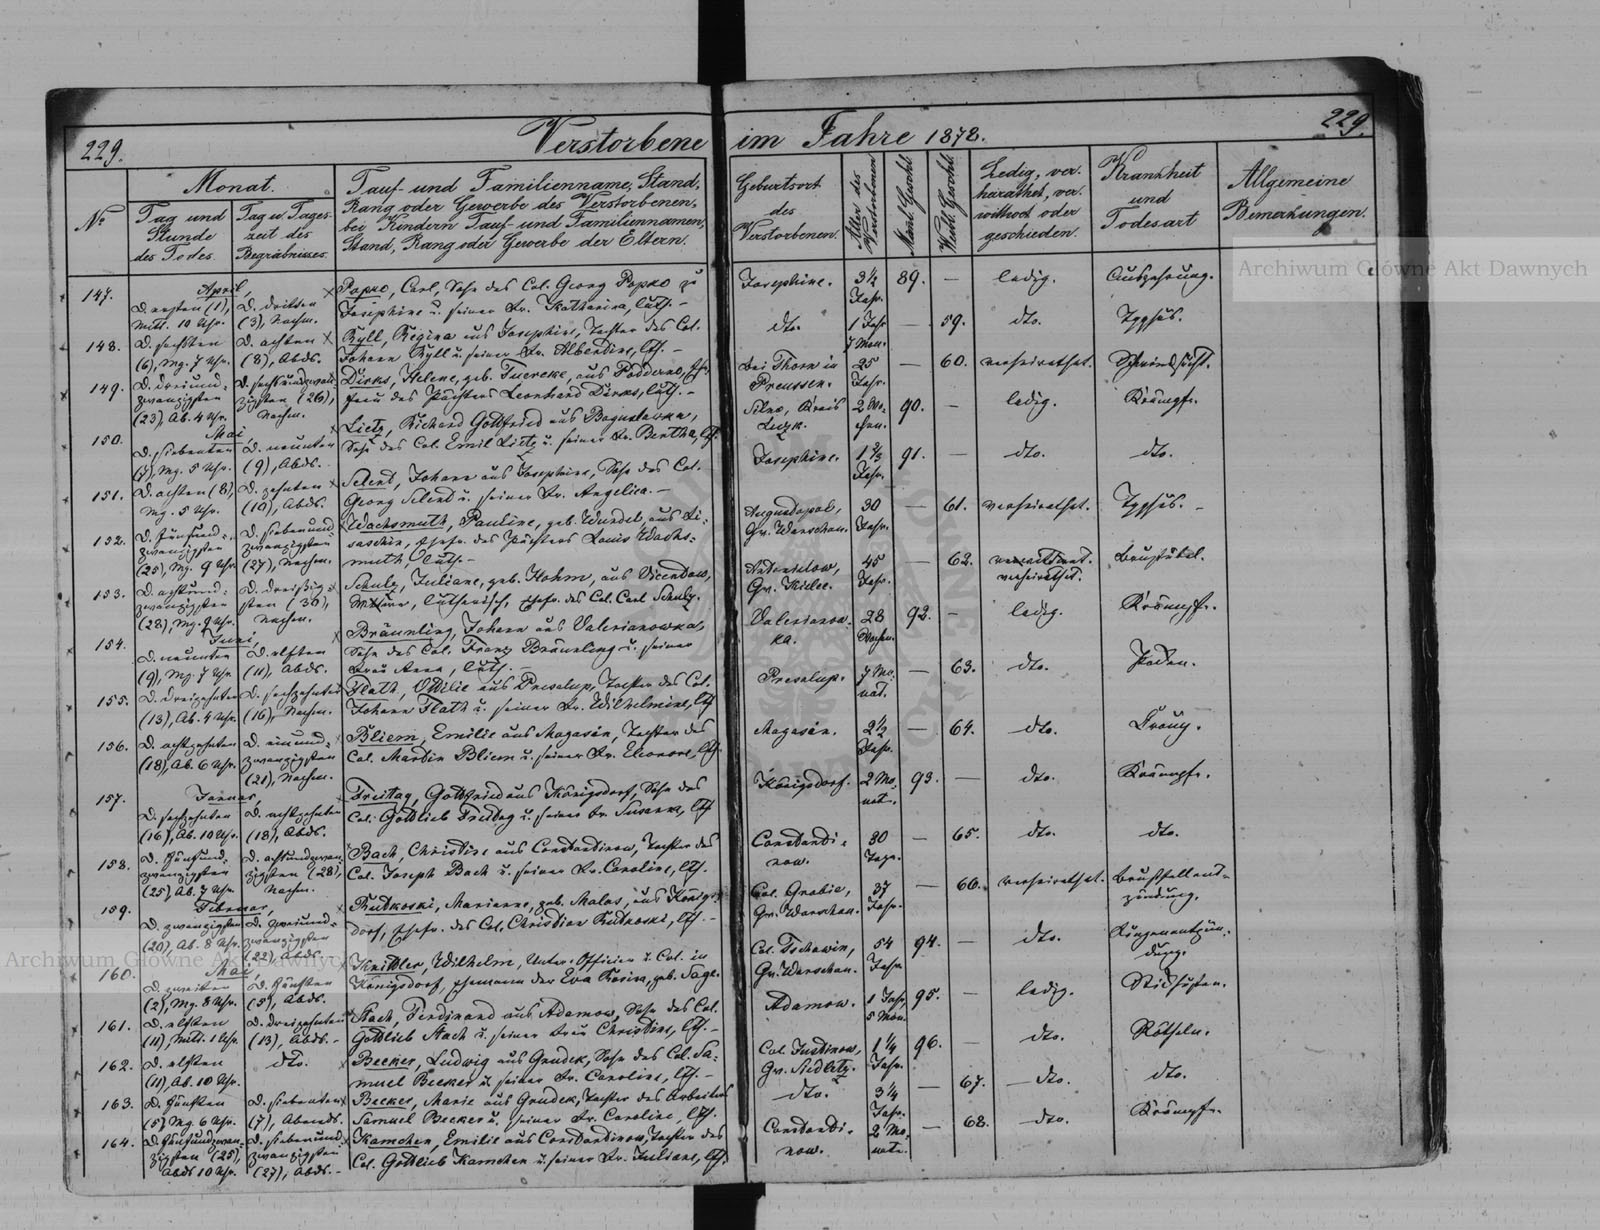 229.
Verstorbene im Jahre 1878.
229.
Nº
Monat.
Tag und Stunde des Todes.
Tag u. Tageszeit des Begräbnisses.
Tauf- und Familienname, Stand,
Rang oder Gewerbe des Verstorbenen,
bei Kindern Tauf- und Familiennamen,
Stand, Rang oder Gewerbe der Eltern.
Geburtsort
des
Verstorbenen.
Alter des Verstorbenen
Männl. Geschl.
Weibl. Geschl.
Ledig, ver-
heirathet, ver-
wittwet oder
geschieden.
Krankheit
und
Todesart
Allgemeine
Bemerkungen.
147.
April,
D. ersten (1), Mitt. 10 Uhr.
D. dritten (3), Nachm.
Popko, Carl, Sohn des Col. Georg Popko zu
Josephine u. seiner Fr. Katharina, luth. –
Josephine.
3½ Jahr.
89.
—
ledig.
Auszehrung.
148.
D. sechsten (6), Mg. 7 Uhr.
D. achten (8), Abds.
Ryll, Regina aus Josephine, Tochter des Col.
Johann Ryll u. seiner Fr. Albertine, lth. –
dto.
1 Jahr 7 Mon.
—
59.
dto.
Typhus.
149.
D. dreiundzwanzigsten (23), Ab. 4 Uhr.
D. sechsundzwanzigsten (26), Nachm.
Dirks, Helene, geb.
frau des Pächters Leonhard Dirks, luth. –
bei Thorn in Preussen.
25 Jahr.
—
60.
verheirathet.
Schwindsucht.
150.
Mai
D. siebenten (7), Mg. 5 Uhr.
D. neunten (9), Abds.
Lietz, Richard Gottfried aus Boguslawka,
Sohn des Col. Emil Lietz u. seiner Fr. Bertha, lth.
Kreis Luzk.
2 Wochen.
90.
—
ledig.
Krämpfe.
151.
D. achten (8), Mg. 5 Uhr.
D. zehnten (10), Abds.
Johann aus Josephine, Sohn des Col.
Georg u. seiner Fr. Angelica. –
Josephine.
1⅔ Jahr.
91.
—
dto.
dto.
152.
D. fünfundzwanzigsten (25), Mg. 9 Uhr
D. siebenundzwanzigsten (27), Nachm.
Wachsmuth, Pauline, geb. Wendel, aus
Ehefr. des Pächters Louis Wachs-
muth, luth. –
Augustopol, Gv. Warschau.
30 Jahr.
—
61.
verheirathet.
Typhus. –
153.
D. achtundzwanzigsten (28), Mg. 9 Uhr.
D. dreißigsten (30), Nachm.
Schulz, Juliane, geb. Hohm, aus
lutherisch, Ehefr. des Col. Carl Schulz.
Antonielow, Gv. Kielce.
45 Jahr.
—
62.
verheirathet.
Brustübel.
154.
Juni,
D. neunten (9), Mg. 7 Uhr
D. elften (11), Abds.
Bräunling, Johann aus Valerianowka,
Sohn des Col. Franz Bräunling u. seiner
Frau Anna, luth. –
Valerianowka.
28 Wochen.
92.
—
ledig.
Krämpfe.
155.
D. dreizehnten (13), Ab. 4 Uhr.
D. sechzehnten (16), Nachm.
Flath, Ottilie aus Preselup, Tochter des Col.
Johann Flath u. seiner Fr. Wilhelmine, lth
Preselup.
7 Monat.
—
63.
dto.
Pocken.
156.
D. achtzehnten (18), Ab. 6 Uhr.
D. einundzwanzigsten (21), Nachm.
Bliem, Emilie aus Magasin, Tochter des
Col. Martin Bliem u. seiner Fr. Eleonore, lth.
Magasin.
2½ Jahr.
—
64.
dto.
157.
Januar,
D. sechzehnten (16), Ab. 10 Uhr.
D. achtzehnten (18), Abds.
Freitag, Gottfried aus Königsdorf, Sohn des
Col. Gottlieb Freitag u. seiner Fr. Susanna, lth
Königsdorf.
2 Monat.
93.
—
dto.
Krämpfe.
158.
D. fünfundzwanzigsten (25), Ab. 7 Uhr.
D. achtundzwanzigsten (28), Nachm.
Bach, Christine aus Constantinow, Tochter des
Col. Joseph Bach u. seiner Fr. Caroline, lth.
Constantinow.
30 Tage.
—
65.
dto.
dto.
159.
Februar,
D. zwanzigsten (20), Ab. 8 Uhr.
D. zweiundzwanzigsten (22), Abds. –
Rutkoski, Marianne, geb. Malas, aus Königs-
dorf, Ehefr. des Col. Christian Rutkoski, lth. –
Col. Grabie, Gv. Warschau.
37 Jahr.
—
66.
verheirathet.
Brustfellentzündung.
160.
Mai,
D. zweiten (2), Mg. 8 Uhr.
D. fünften (5), Abds.
Knittler, Wilhelm, Unter-Officier u. Col. in
Königsdorf, Ehemann der Eva Rosina, geb. Sage.
Col. Tschawin, Gv. Warschau.
54 Jahr.
94.
—
dto.
Lungenentzündung.
161.
D. elften (11), Mitt. 1 Uhr.
D. dreizehnten (13), Abds. –
Stach, Ferdinand aus Adamow, Sohn des Col.
Gottlieb Stach u. seiner Frau Christine, lth. –
Adamow.
1 Jahr, 5 Mon.
95.
—
ledig.
Stickhusten.
162.
D. elften (11), Ab. 10 Uhr.
dto.
Becker, Ludwig aus Grudek, Sohn des Col. Sa-
muel Becker u. seiner Fr. Caroline, lth. –
Col. Justinow, Gv. Sidletz.
1¼ Jahr.
96.
—
dto.
Rötheln.
163.
D. fünften (5) Mg. 6 Uhr.
D. siebenten (7), Abends.
Becker, Marie aus Grudek, Tochter des Arbeiters
Samuel Becker u. seiner Fr. Caroline, lth.
dto.
3¼ Jahr.
—
67.
dto.
dto.
164.
D. fünfundzwanzigsten (25), Abds 10 Uhr.
D. siebenundzwanzigsten (27), Abds. –
Kamchen, Emilie aus Constantinow, Tochter des
Col. Gottlieb Kamchen u. seiner Fr. Juliane, lth.
Constantinow.
2 Monate.
—
68.
dto.
Krämpfe.
Archiwum Główne Akt Dawnych
Archiwum Główne Akt Dawnych